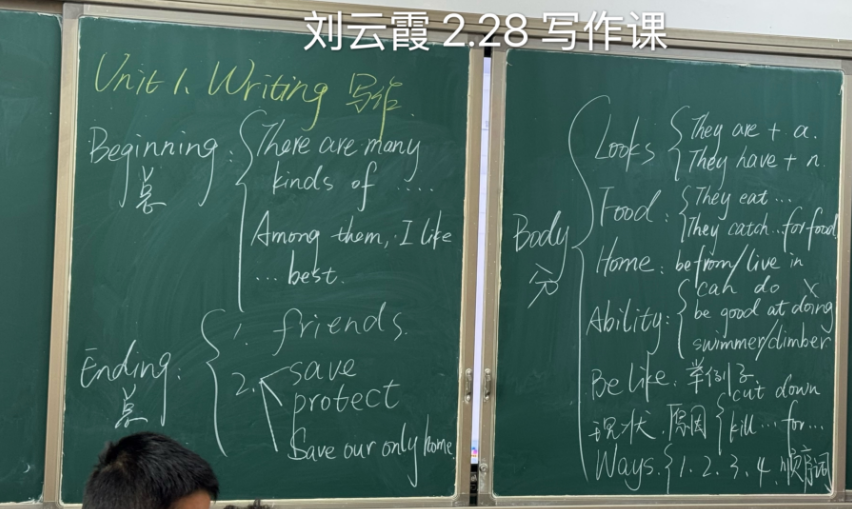 刘云霞 2.28 写作课
Unit 1. Writing 写作.
Beginning:
总
There are many
kinds of ....
Among them, I like
... best.
Ending:
总
1. friends.
2. save
protect
Save our only home
Body
分
Looks
They are + a.
They have + n.
Food:
They eat...
They catch...for food
Home: be from/live in
Ability:
can do X
be good at doing
swimmer/climber
Be like: 举例子
现状. 原因
cut down
kill...for...
Ways. 1. 2. 3. 4. 顺序词